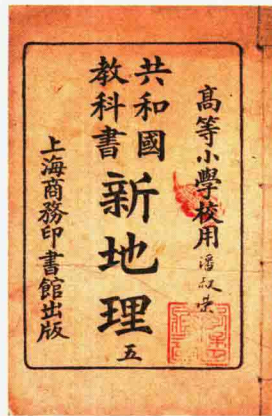 高等小學校用
共和國
教科書
新地理
五
上海商務印書館出版